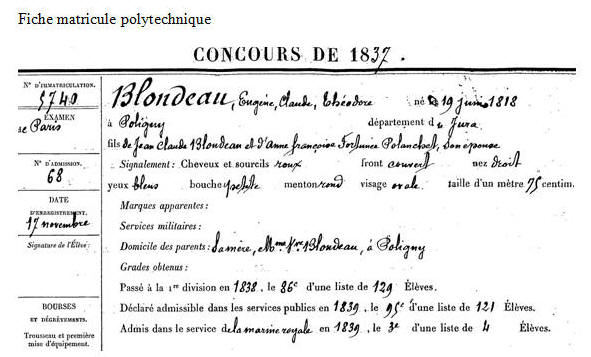 Fiche matricule polytechnique
CONCOURS DE 1837.
N° D'IMMATRICULATION.
5740
EXAMEN
de Paris
N° D'ADMISSION.
68
DATE
D'ENREGISTREMENT.
17 novembre
Signature de l'Élève:
BOURSES
ET DÉGRÈVEMENTS.
Trousseau et première
mise d'équipement.
Blondeau, Eugène, Claude, Théodore né le 19 juin 1818
à Poligny département du Jura
fils de Jean Claude Blondeau et d'Anne françoise Fortunée Polanchet, son épouse
Signalement: Cheveux et sourcils roux front couvert nez droit
yeux bleus bouche petite menton rond visage ovale taille d'un mètre 75 centim.
Marques apparentes:
Services militaires:
Domicile des parents: Sa mère, Mme Vve Blondeau, à Poligny
Grades obtenus:
Passé à la 1re division en 1838, le 86e d'une liste de 129 Élèves.
Déclaré admissible dans les services publics en 1839, le 95e d'une liste de 121 Élèves.
Admis dans le service de la marine royale en 1839, le 3e d'une liste de 4 Élèves.